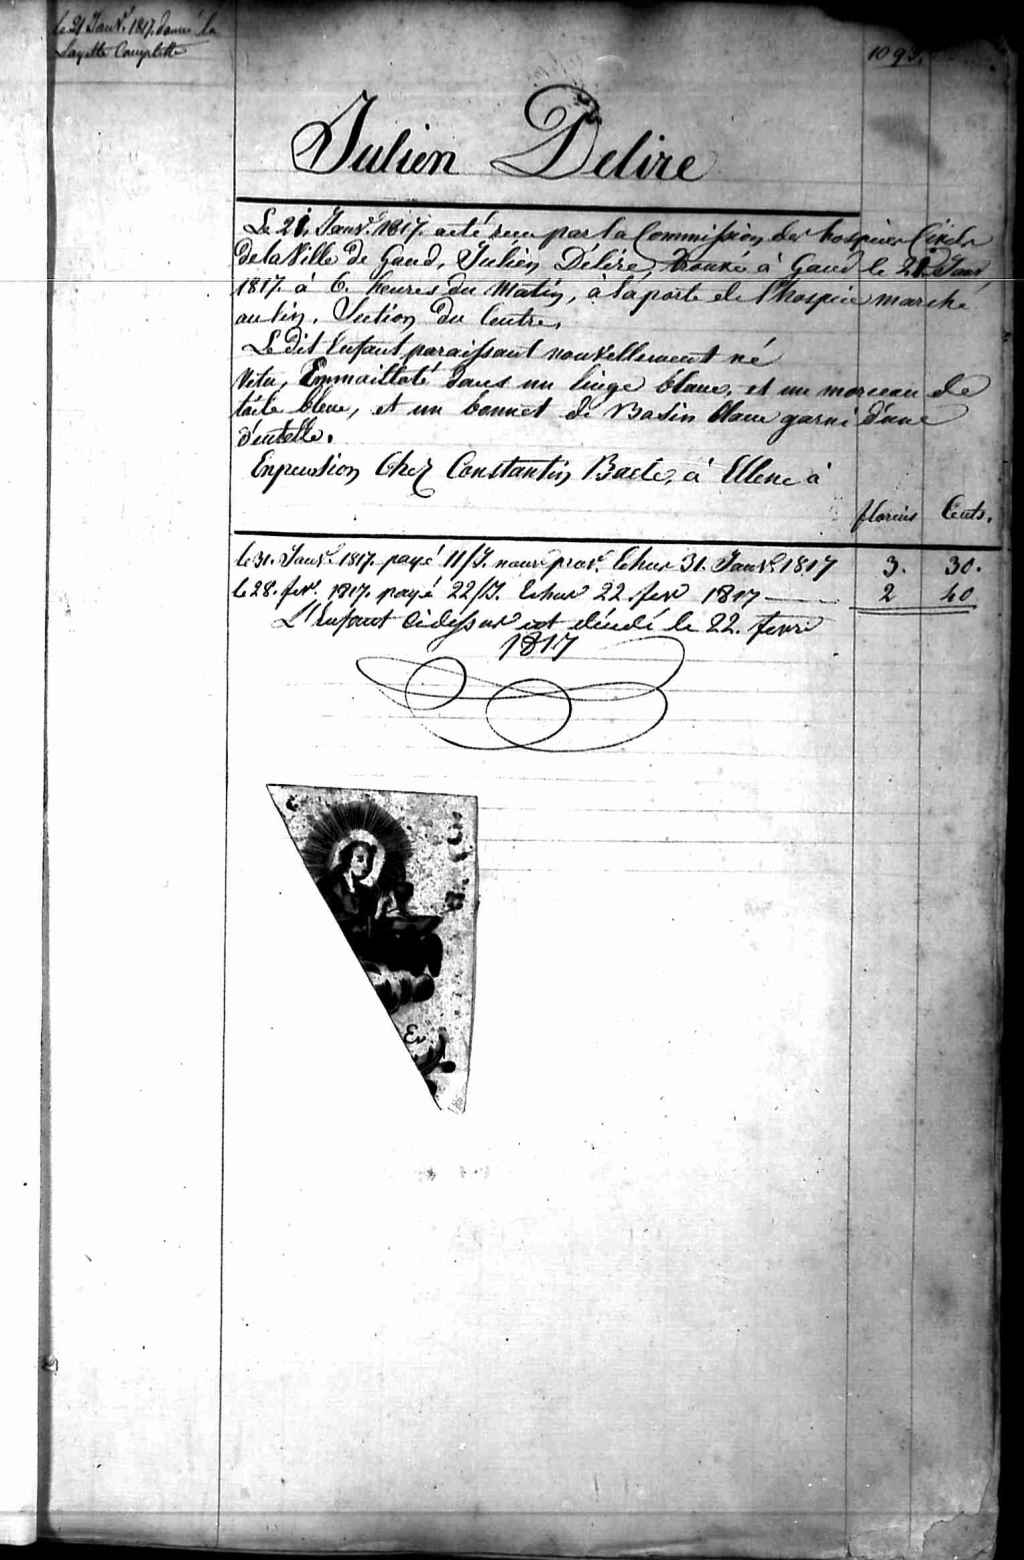 le 21 Janv.r 1817. donné la
Layette Complette
1093.
Julien Delire
Le 21. Janv.r 1817. a été recu par la Commission des hospices Civils
de la Ville de Gand, Julien Délire, trouvé à Gand le 21. Janv
1817. à 6. heures du Matin, à la porte de l'hospice marché
au lin. Section du Centre.
Le dit Enfant paraissant nouvellement né
Vetu, Emmailloté dans un linge blanc, et un morceau de
toile bleue, et un bonnet de Basin blanc garni d'une
dentelle.
En pension Chez Constantin Baete, à Ellene à
florins Cents.
le 31. Janv.r 1817. payé 11/J. nour prov. Echus 31. Janv.r 1817 3. 30.
le 28. fev.r 1817. payé 22/J. Echus 22. fev 1817 2 40
L'Enfant cidessus est décédé le 22. fevri
1817
Ev